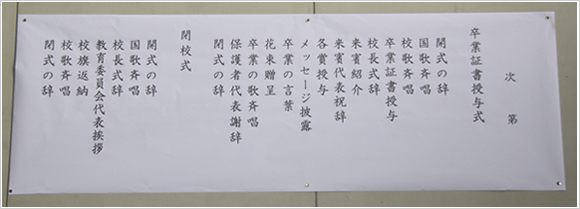 次第
卒業証書授与式
開式の辞
国歌斉唱
校歌斉唱
卒業証書授与
校長式辞
来賓紹介
来賓代表祝辞
各賞授与
メッセージ披露
卒業の言葉
花束贈呈
卒業の歌斉唱
保護者代表謝辞
閉式の辞
閉校式
開式の辞
国歌斉唱
校長式辞
教育委員会代表挨拶
校旗返納
校歌斉唱
閉式の辞